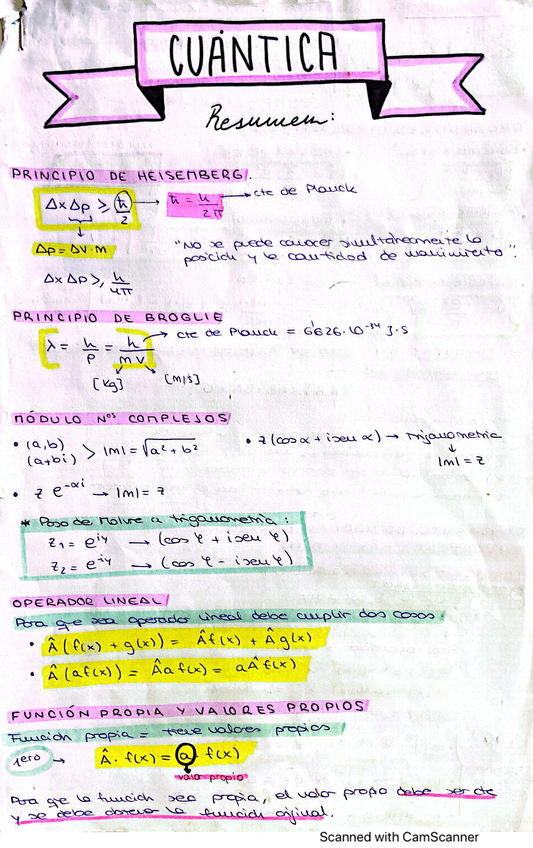 CUÁNTICA
Resumen:
PRINCIPIO DE HEISEMBERG.
Δx Δp ≥ ħ/2 → ħ = h/2π → cte de Planck
Δp = Δv·m
"No se puede conocer simultáneamente la
posición y la cantidad de movimiento".
Δx Δp ≥ h/4π
PRINCIPIO DE BROGLIE
λ = h/p = h/mv → cte de Planck = 6'626·10⁻³⁴ J·s
[kg] [m/s]
MÓDULO Nºs COMPLEJOS
• (a,b)
(a+bi) > |m| = √a²+b²
• z (cos α + i sen α) → trigonometría
↓
|m| = z
• z e^-αi → |m| = z
* Paso de Moivre a trigonometría:
z₁ = e^iφ → (cos φ + i sen φ)
z₂ = e^-iφ → (cos φ - i sen φ)
OPERADOR LINEAL
Para que sea operador lineal debe cumplir dos cosas:
• Â (f(x) + g(x)) = Âf(x) + Âg(x)
• Â (a f(x)) = Âa f(x) = aÂf(x)
FUNCIÓN PROPIA Y VALORES PROPIOS
Función propia = tiene valores propios
1ero → Â · f(x) = a f(x)
valor propio
Para que la función sea propia, el valor propio debe ser cte
y se debe obtener la función original.
Scanned with CamScanner